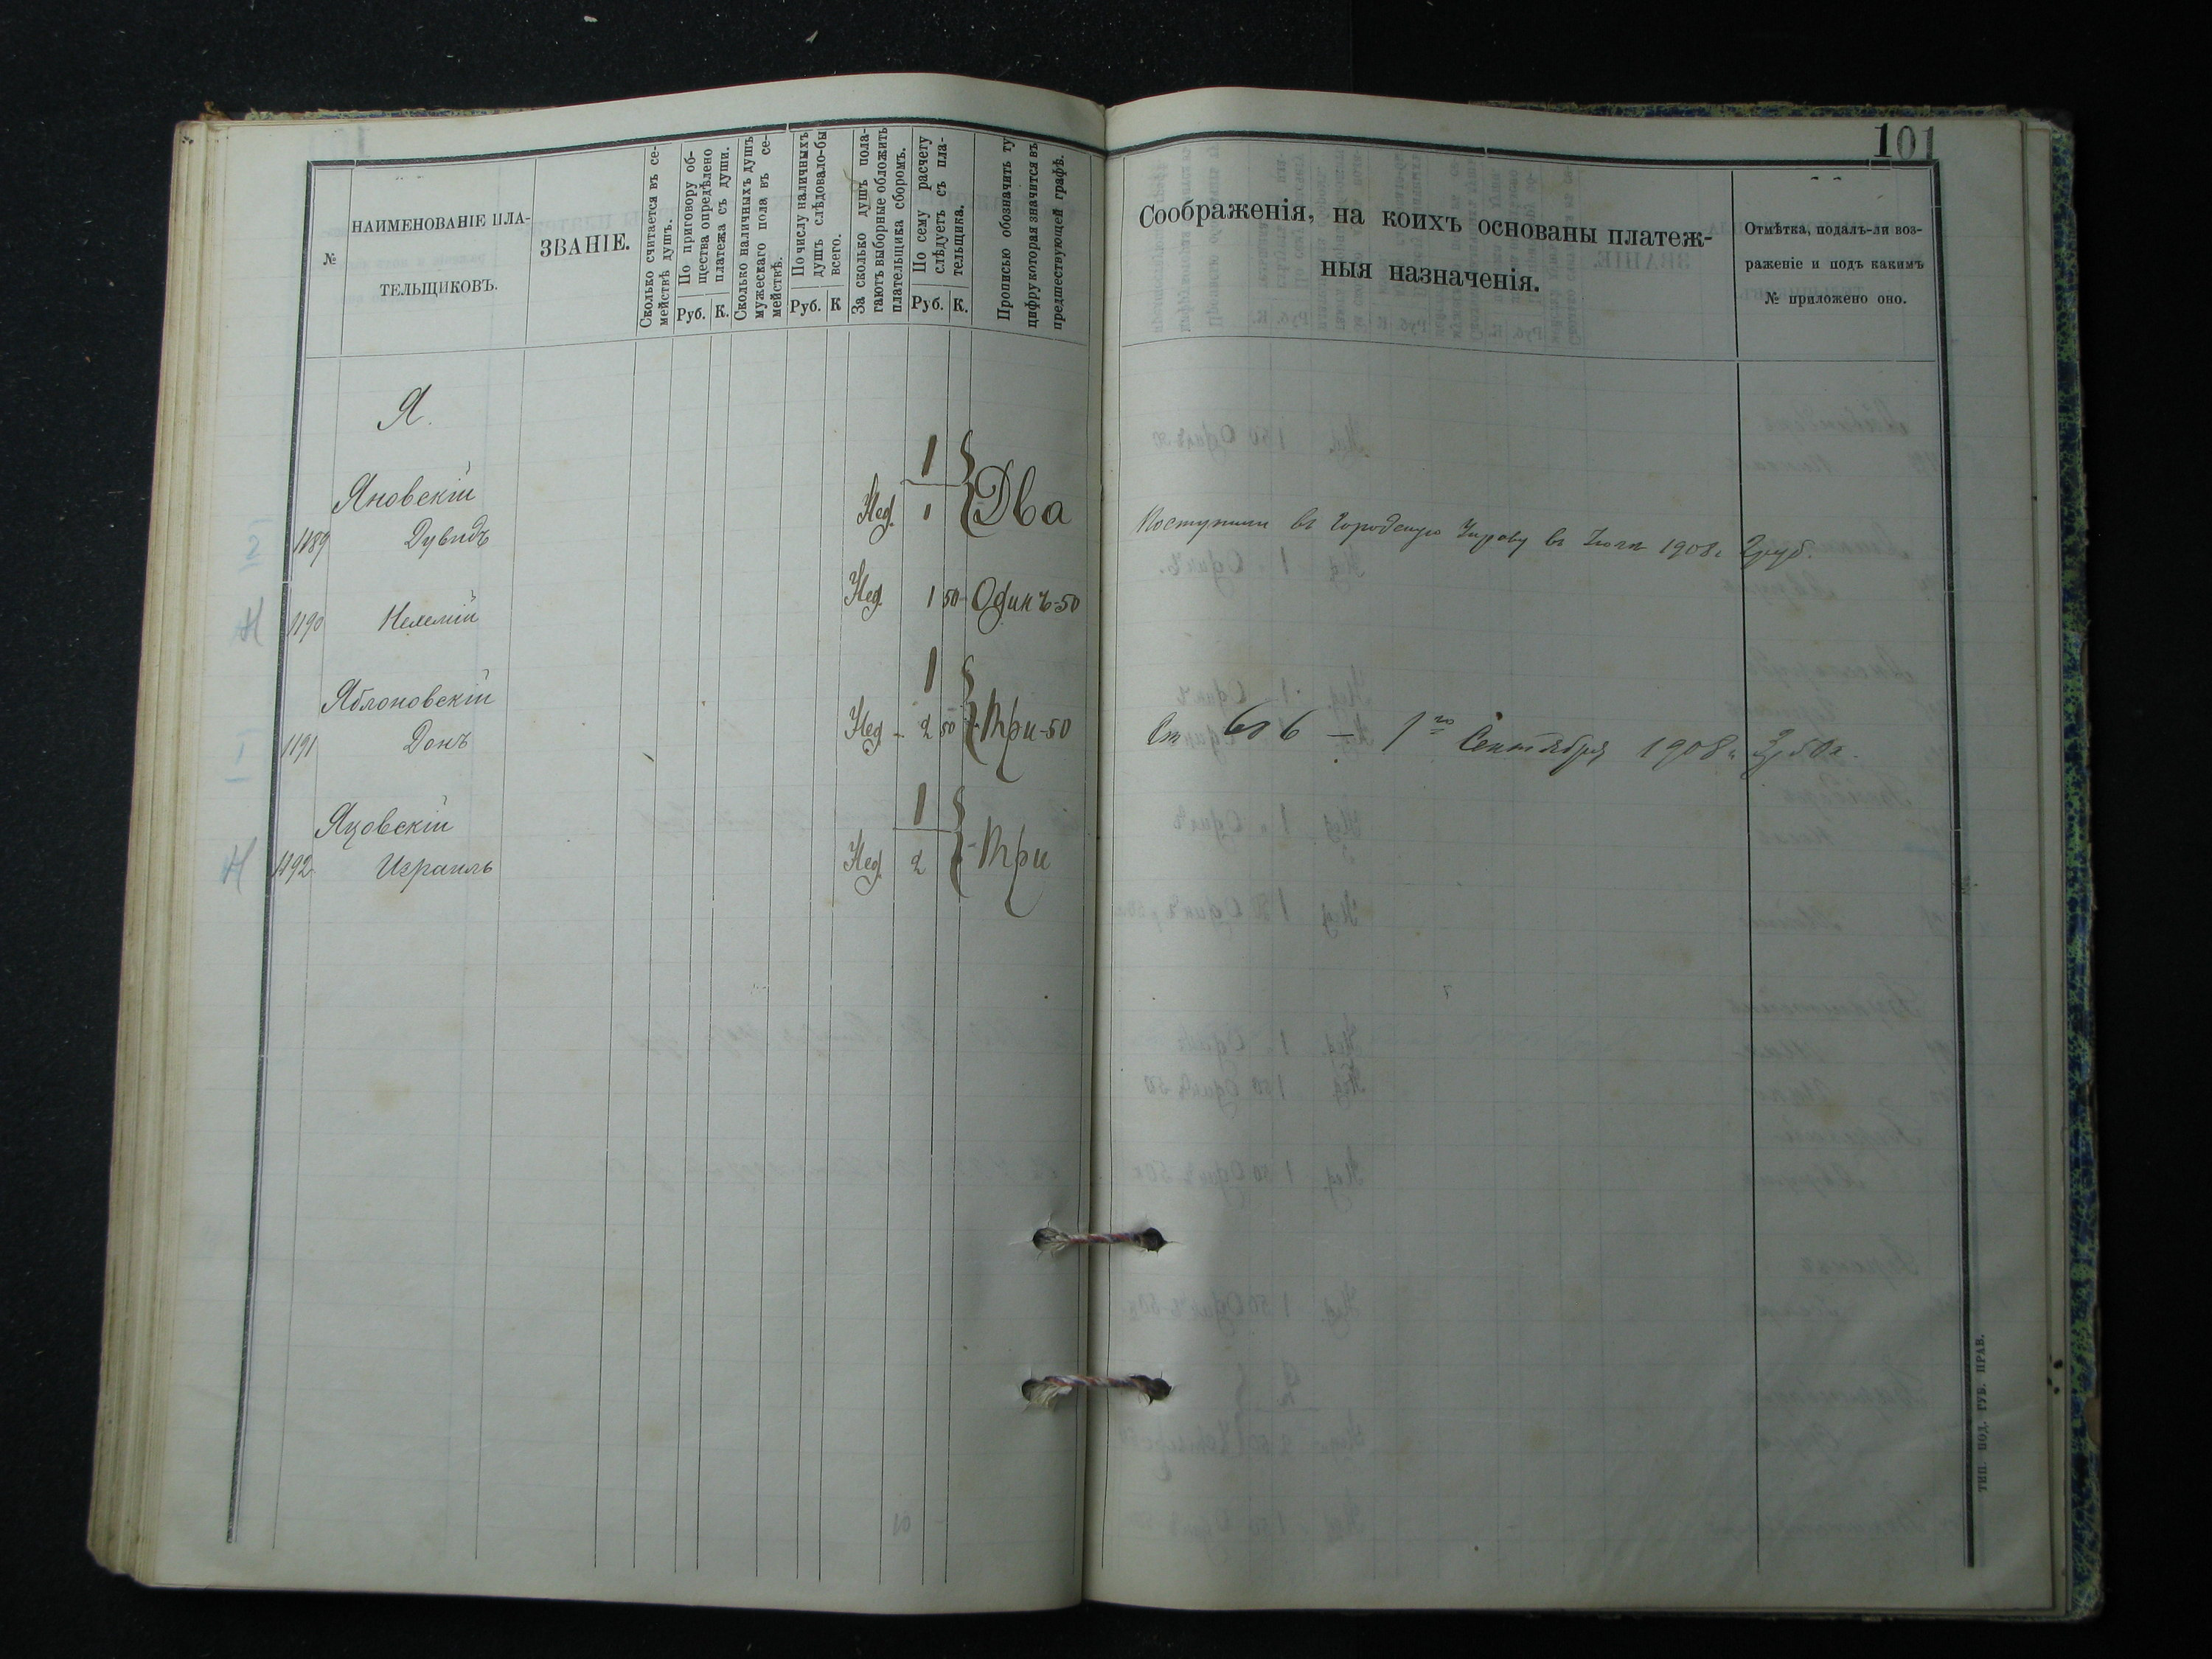 101
№
НАИМЕНОВАНІЕ ПЛА-
ТЕЛЬЩИКОВЪ.
ЗВАНІЕ.
Сколько считается въ се-
мействѣ душъ.
По приговору об-
щества опредѣлено
платежа съ души.
Руб. К.
Сколько наличныхъ душъ
мужескаго пола въ се-
мействѣ.
По числу наличныхъ
душъ слѣдовало-бы
всего.
Руб. К
За сколько душъ пола-
гаютъ выборные обложить
плательщика сборомъ.
По сему расчету
слѣдуетъ съ пла-
тельщика.
Руб. К.
Прописью обозначить ту
цифру которая значится въ
предшествующей графѣ.
Соображенія, на коихъ основаны платеж-
ныя назначенія.
Отмѣтка, подалъ-ли воз-
раженіе и подъ какимъ
№ приложено оно.
Я.
Яновскій 1
1189 Дувидъ Нед. 1 Два
Поступили въ Городскую Управу въ 1908 г 2 руб.
1190 Нехемій Нед. 1 50 - Одинъ-50
Яблоновскій 1
1191 Донъ Нед - 2 50 - Три-50
Ст 606 — 1го Сентября 1908 г 3р 50к.
Яцовскій 1
1192 Израиль Нед. 2 - Три
ТИП. ПОД. ГУБ. ПРАВ.